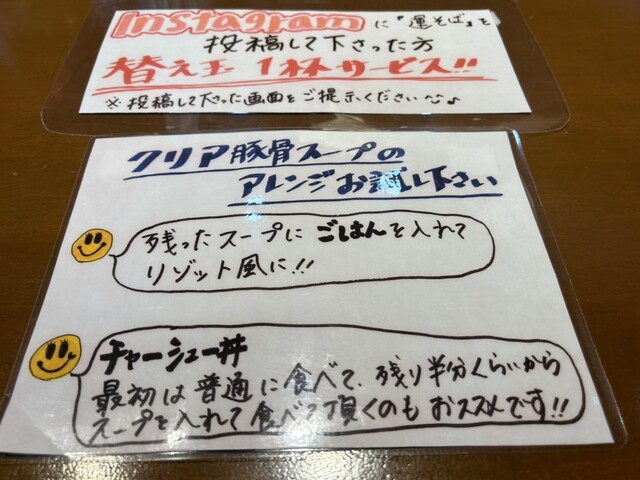 Instagramに『運そば』を
投稿して下さった方
替え玉1杯サービス!!
※投稿して下さった画面をご提示ください^^♪
クリア豚骨スープの
アレンジお試し下さい
残ったスープにごはんを入れて
リゾット風に!!
チャーシュー丼
最初は普通に食べて、残り半分くらいから
スープを入れて食べて頂くのもおススメです!!